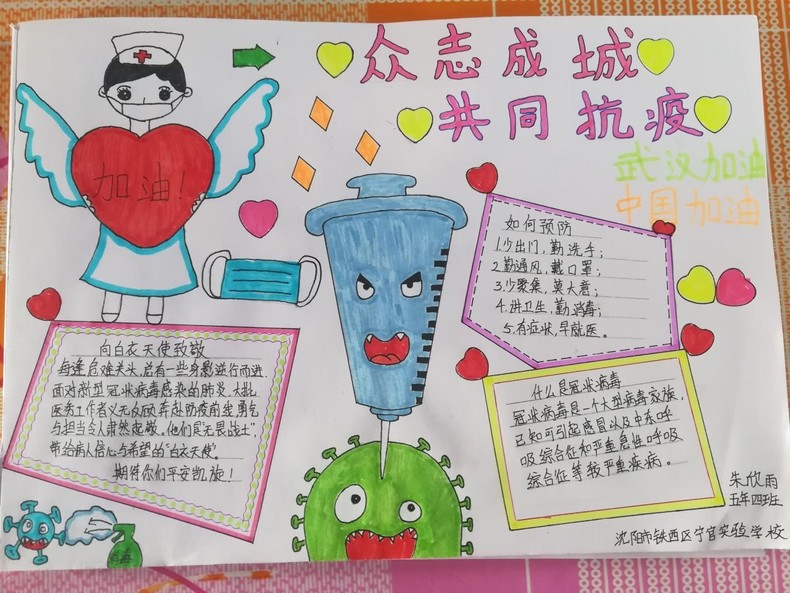 众志成城
共同抗疫
武汉加油
中国加油
加油!
如何预防
1.少出门,勤洗手;
2.勤通风,戴口罩;
3.少聚集,莫大意;
4.讲卫生,勤消毒;
5.有症状,早就医。
向白衣天使致敬
每逢危难关头,总有一些身影逆行而进
面对新型冠状病毒感染的肺炎,大批
医务工作者义无反顾奔赴防疫前线勇气
与担当令人肃然起敬。他们是"无畏战士",
带给病人信心与希望的"白衣天使"。
期待你们平安凯旋!
什么是冠状病毒
冠状病毒是一个大型病毒家族,
已知可引起感冒以及中东呼
吸综合征和严重急性呼吸
综合征等较严重疾病。
朱欣雨
五年四班
沈阳市铁西区宁官实验学校